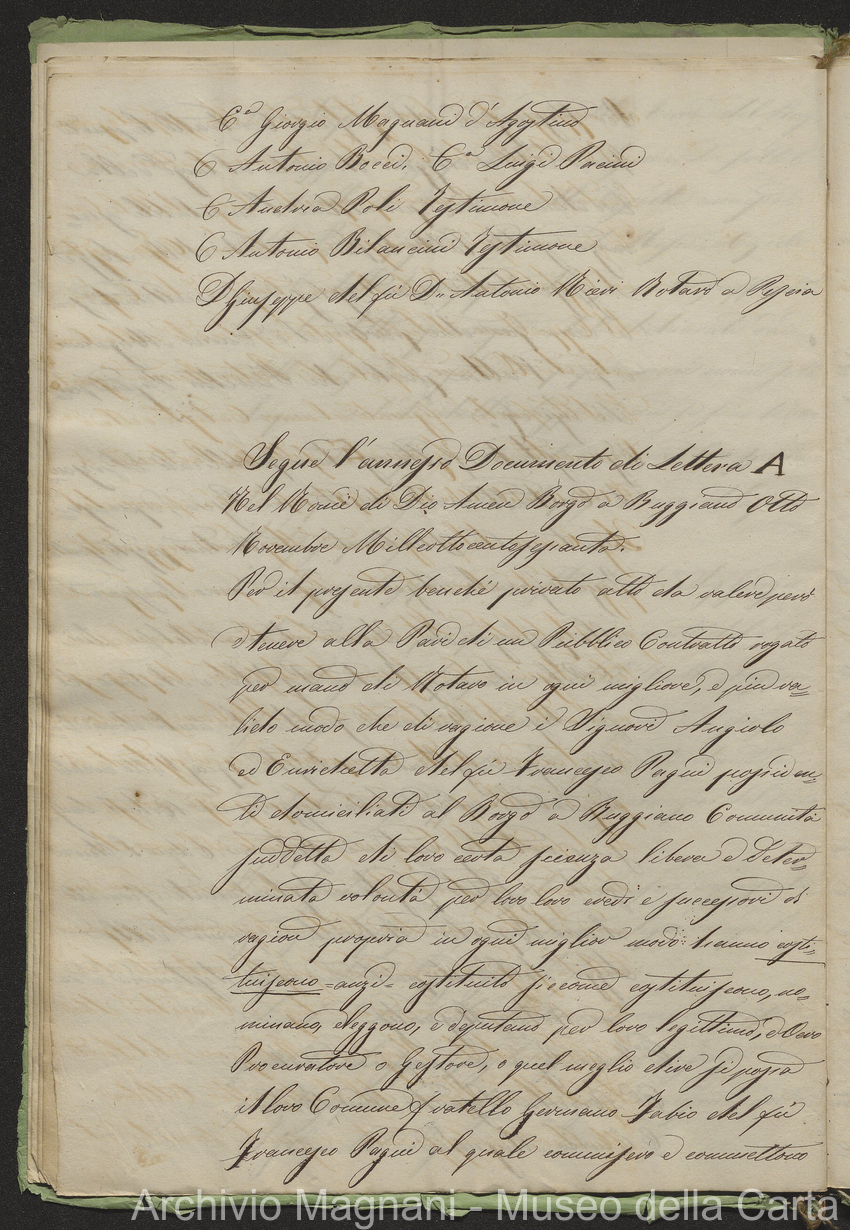 Ca Giorgio Magnani d'Agostino
C Antonio Bocci. Ca Luigi Pacini
C Andrea Poli Testimone
C Antonio Bilancini Testimone
D Giuseppe del fù Dr. Antonio Ricci Notaro a Pescia
Segue l'annesso Documento di Lettera A
Nel Nome di Dio Amen Borgo a Buggiano Otto
Novembre Milleottocentosessanta.
Per il presente benchè privato atto da valere però
e tenere alla Pari di un Pubblico Contratto rogato
per mano di Notaro in ogni migliore, e più va=
lido modo che di ragione i Signori Angiolo
ed Enrichetta del fù Francesco Pagni possiden=
ti domiciliati al Borgo a Buggiano Comunità
suddetta di loro certa scienza libera e deter=
minata volontà per loro loro eredi e successori di
ragion propria in ogni miglior modo: hanno costi=
tuiscono = anzi = costituito siccome costituiscono, no=
minano, eleggono, e deputano per loro legittimo, e Vero
Procuratore o Gestore, o quel meglio dire si possa
il loro Comune fratello Germano Fabio del fù
Francesco Pagni al quale commisero e commettono
Archivio Magnani - Museo della Carta